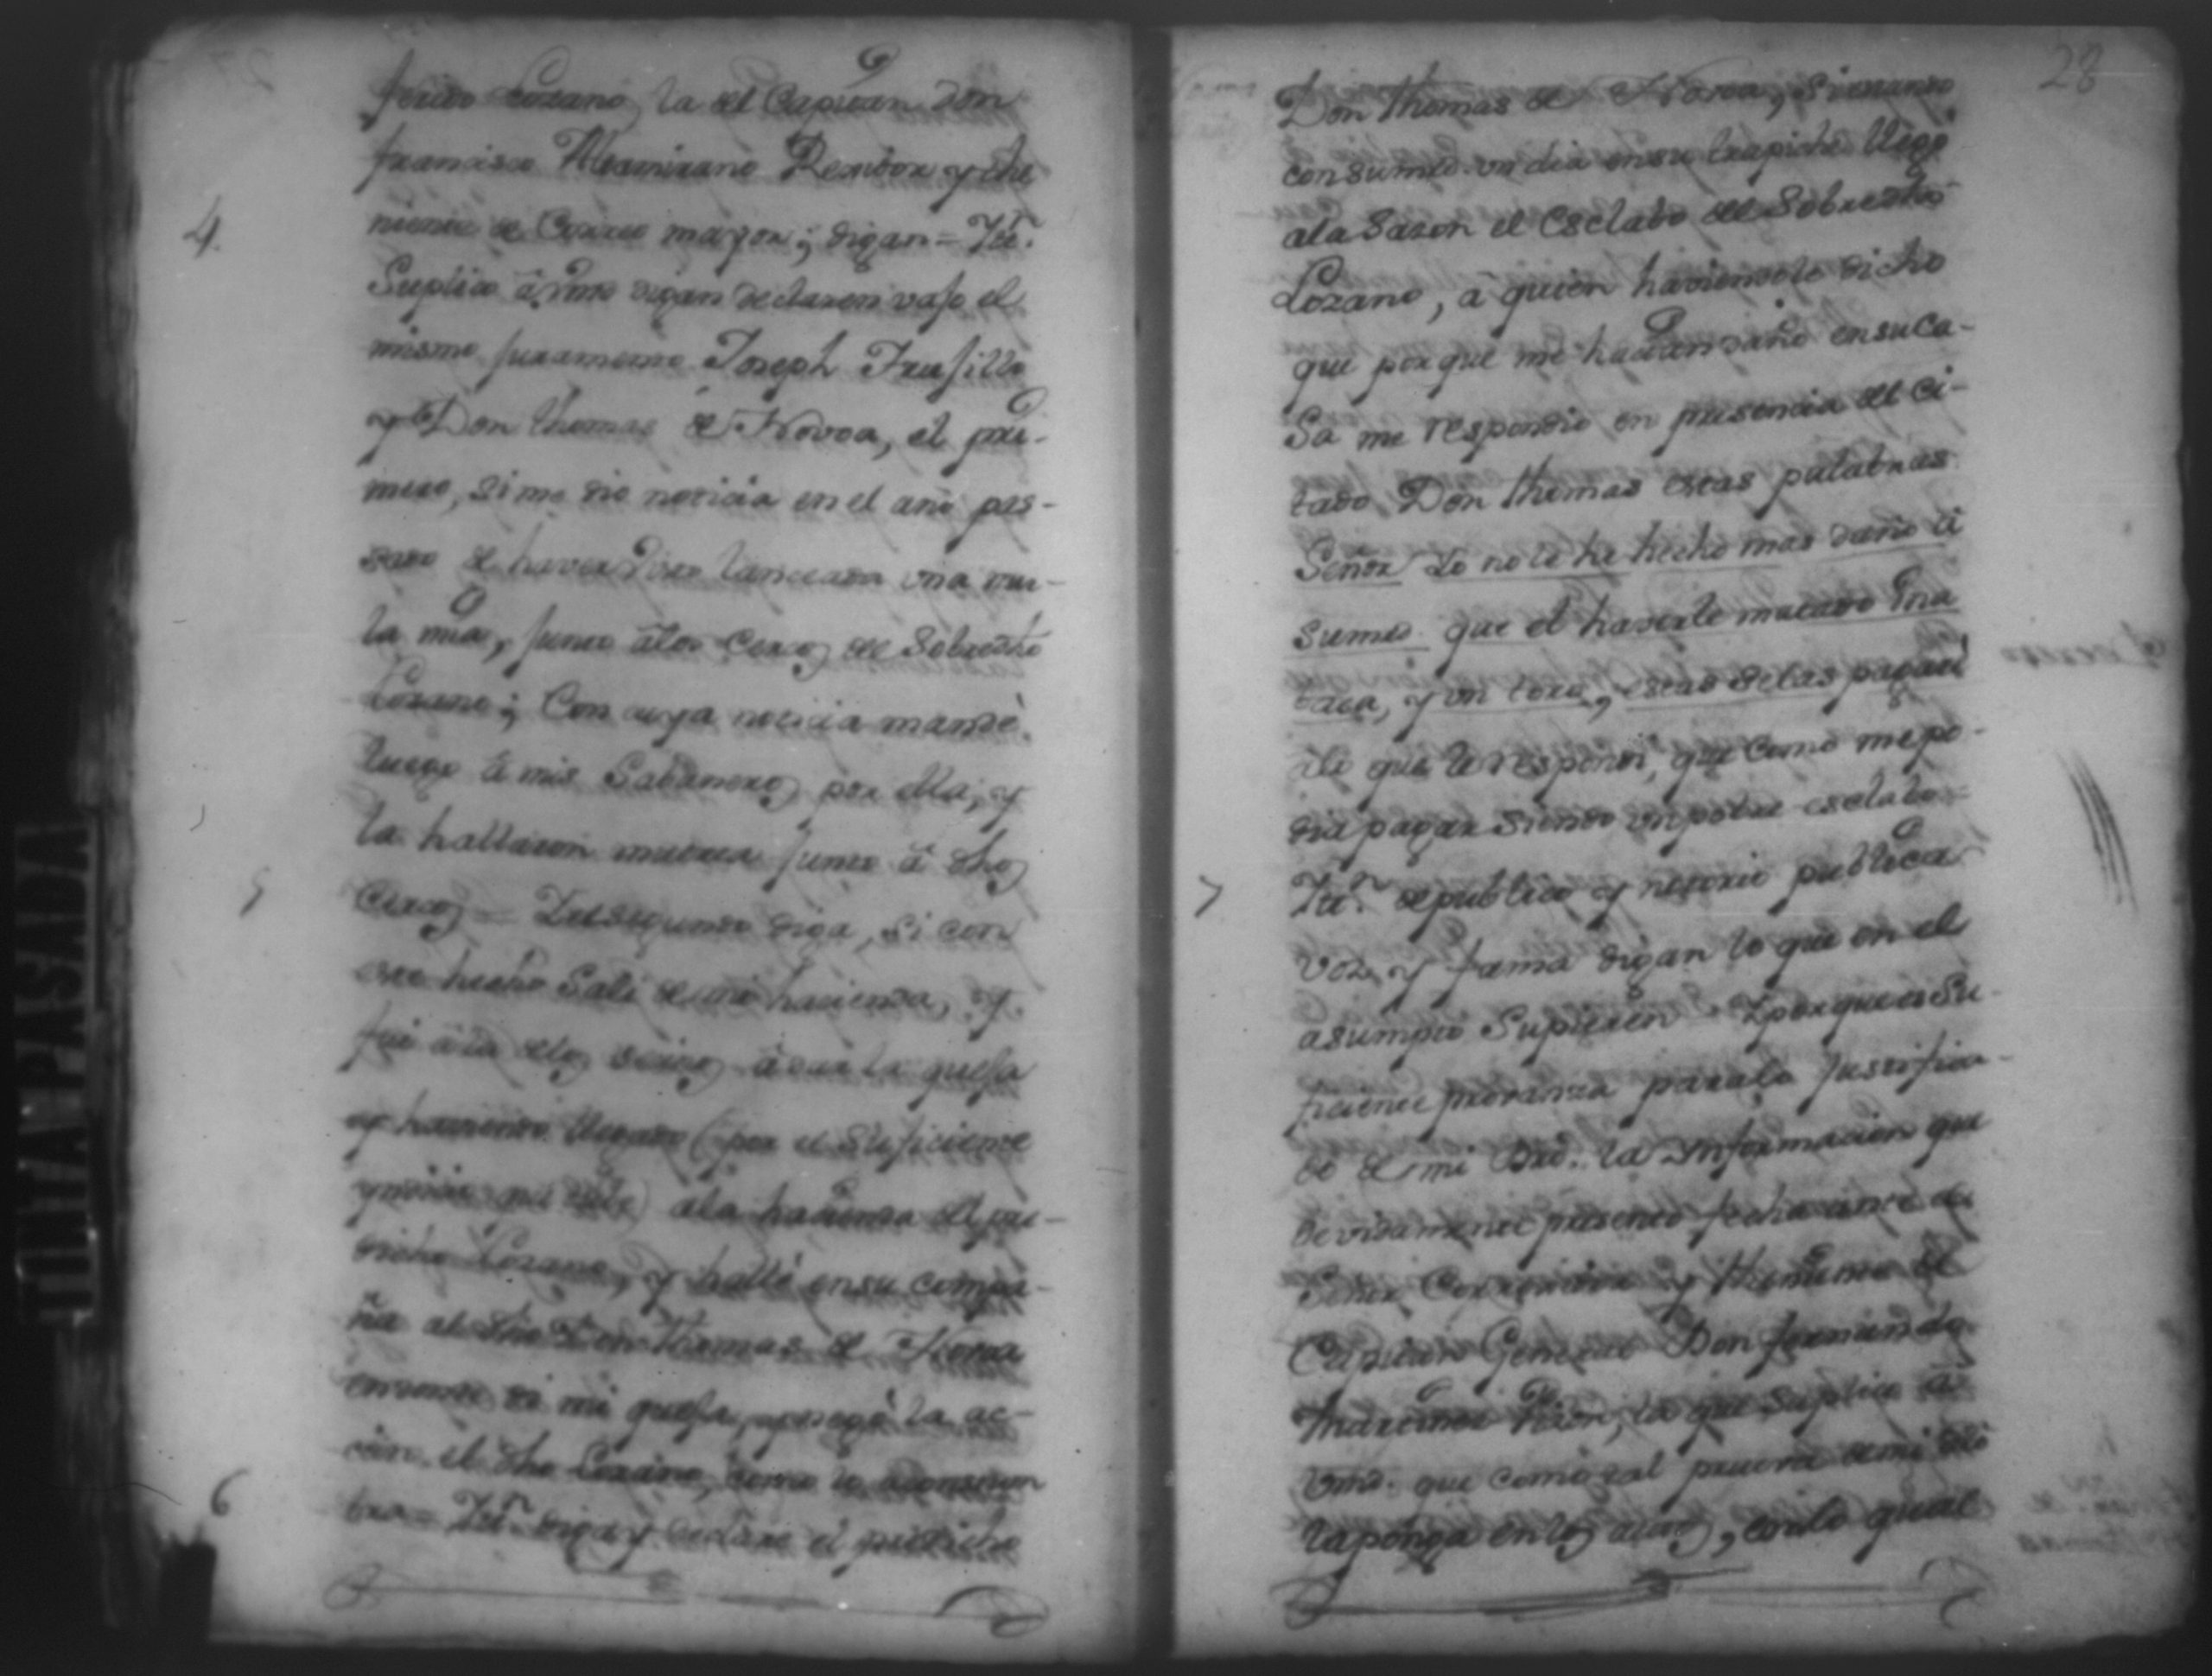 ferido Lozano, la del Capitan Don
francisco Altamirano Rexidor y the
niente de Correo mayor; digan = Itt.
4.
Suplico â Vmd digan declaren vajo el
mismo juramento Joseph Trujillo
y Don thomas de Novoa, el pri-
mero, si me dio noticia en el año pas-
sado de haver visto lanceada vna mu-
la mia, junto âlos cercos del sobredho
Lozano; Con cuya noticia mandè
luego â mis Sabaneros por ella, y
la hallaron muerta junto â dhos
5
Cercos = Y el segundo diga, si con
este hecho Sali de mi hacienda, y
fui âla delos dichos â dar la quexa
y haviendo llegado (por el suficiente
) ala hacienda del pre-
dicho Lozano, y hallè ensu compa-
ñia al dho Don thomas de Novoa
entonces di mi quexa, la ac-
cion el dho Lozano, como lo
6
tra = Itt. diga y declare el predicho
28
Don thomas de Novoa, si estando
con sumd. vn dia ensu trapiche llegò
ala sazon el Esclabo del Sobredho
Lozano, â quien haviendole dicho
que porque me hacian daño ensu ca-
sa me respondio en presencia del ci-
tado Don thomas estas palabras
Señor Yo no le he hecho mas daño â
sumd. que el haverle matado Vna
baca, y vn toro, estas selas pagarè
âlo que le respondi, que como me po-
dia pagar siendo vn pobre esclabo =
7
Itt. de publico y notorio publica
voz y fama digan lo que en el
asumpto Supieren = Y porque es Su-
ficiente provanza para lo justifica-
do de mi dro. la Ynformacion que
devidamente presento fecha ante el
Señor Corregidor y theniente de
Capitan General Don fernando
Martinez Pison, la que suplico â
Vmd. que como tal prueva de mi dro
la ponga en los autos, conlo qual